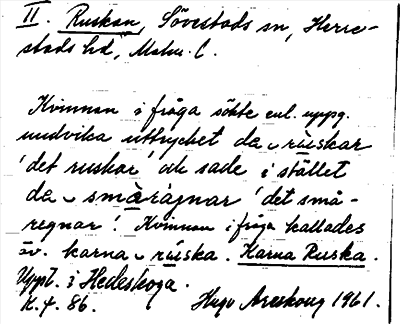 II. Ruskan, Sövestads sn, Herre-
stads hd, Malm. C.
Kvinnan i fråga sökte enl. uppg.
undvika uttrycket da ᴗ rùskar
'det ruskar' och sade i stället
da ᴗ smàrägnar 'det små-
regnar'. Kvinnan i fråga kallades
äv. karna ᴗ rúska. Karna Ruska.
Uppt. i Hedeskoga.
K. 4. 86. Hugo Areskoug 1961.